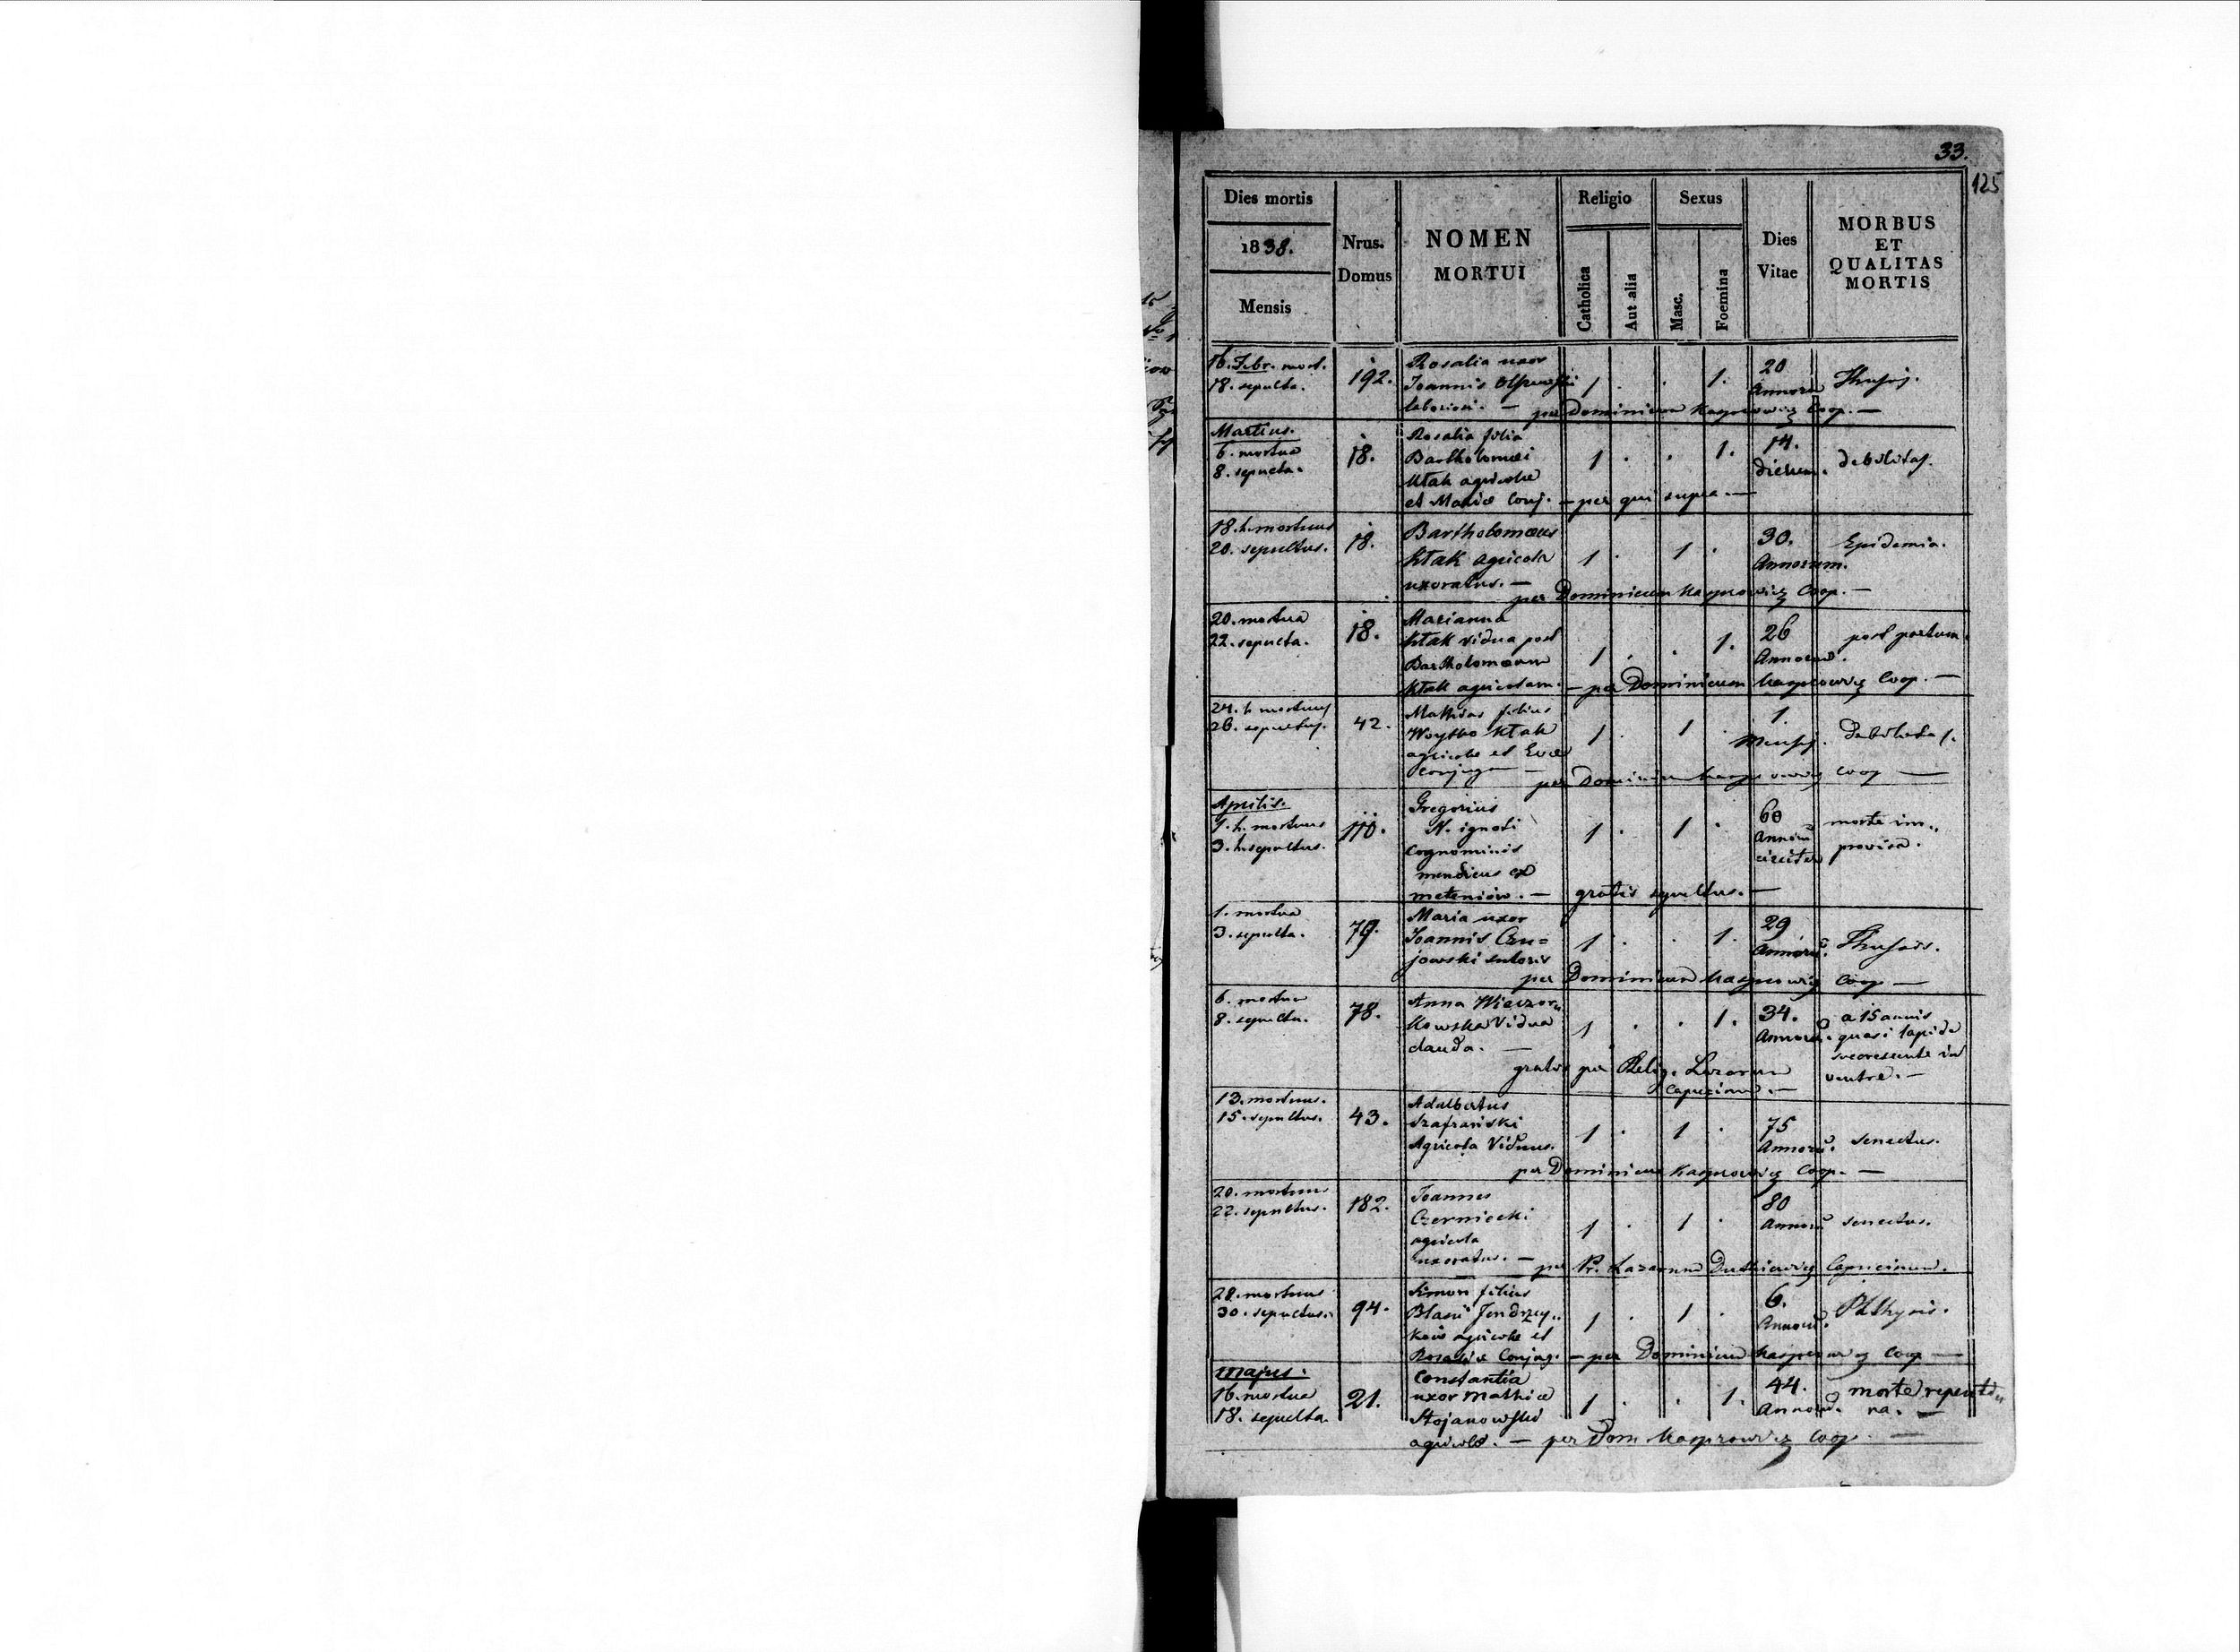 33.
125
Dies mortis
1838.
Mensis
Nrus.
Domus
NOMEN
MORTUI
Religio
Catholica
Aut alia
Sexus
Masc.
Foemina
Dies
Vitae
MORBUS
ET
QUALITAS
MORTIS
16. Febr. mort.
18. sepulta.
192.
Rosalia uxor
Joannis
laboriosi. —
1 . . 1.
20
Annorū
per Dominicum Kasprowicz Coop. —
Martius.
6. mortua
8. sepulta.
18.
Rosalia filia
Bartholomæi
Kłak agricolæ
et Mariæ Conj. — per qui supra. —
1 . . 1.
14.
dierum.
debilitas.
18. h. mortuus
20. sepultus.
18.
Bartholomæus
Kłak agricola
uxoratus. —
1 . 1 .
30.
Annorum.
Epidemia.
per Dominicum Kasprowicz Coop. —
20. mortua
22. sepulta.
18.
Marianna
Kłak vidua post
Bartholomæum
Kłak agricolam. — per Dominicum Kasprowicz Coop. —
1 . . 1.
26
Annorū.
post partum.
24. h. mortuus
26. sepultus.
42.
Mathias filius
Woytko Kłak
agricolæ et Evæ
conjug —
1 . 1 .
1.
Mensis.
Debilitas.
per Dominicum Kasprowicz Coop —
Aprilis.
1. h. mortuus
3. h. sepultus.
110.
Gregorius
N. ignoti
cognominis
mendicus ex
meteniów. — gratis sepultus. —
1 . 1 .
60
Annorū
circiter
morte im„
provisa.
1. mortua
3. sepulta.
79.
Maria uxor
Joannis Czu=
jowski sutoris
1 . . 1.
29
Annorū.
per Dominicum Kasprowicz Coop —
6. mortua
8. sepulta.
78.
Anna Wieczor„
kowska Vidua
clauda. —
1 . . 1.
34.
Annorū.
a 15 annis
quasi lapide
ventre. —
gratis per Relig. Lazarum
Capucinum. —
13. mortuus.
15. sepultus.
43.
Adalbertus
Szafrański
Agricola Viduus.
1 . 1 .
75
Annorū.
senectus.
per Dominicum Kasprowicz Coop. —
20. mortuus
22. sepultus.
182.
Joannes
Czerniecki
agricola
uxoratus. — per Pr. Lazarum Dutkiewicz Capucinum.
1 . 1 .
80
Annorū
senectus.
28. mortuus
30. sepultus.
94.
Simon filius
Blasii Jendrzey„
ków agricolæ et
Rosaliæ Conjug. — per Dominicum Kasprowicz Coop —
1 . 1 .
6.
Annorū.
Phthysis.
Majus.
16. mortua
18. sepulta.
21.
Constantia
uxor Mathiæ
Stojanowski
agricolæ. — per Dom Kasprowicz Coop. —
1 . . 1.
44.
Annorū.
morte repenti„
na. —